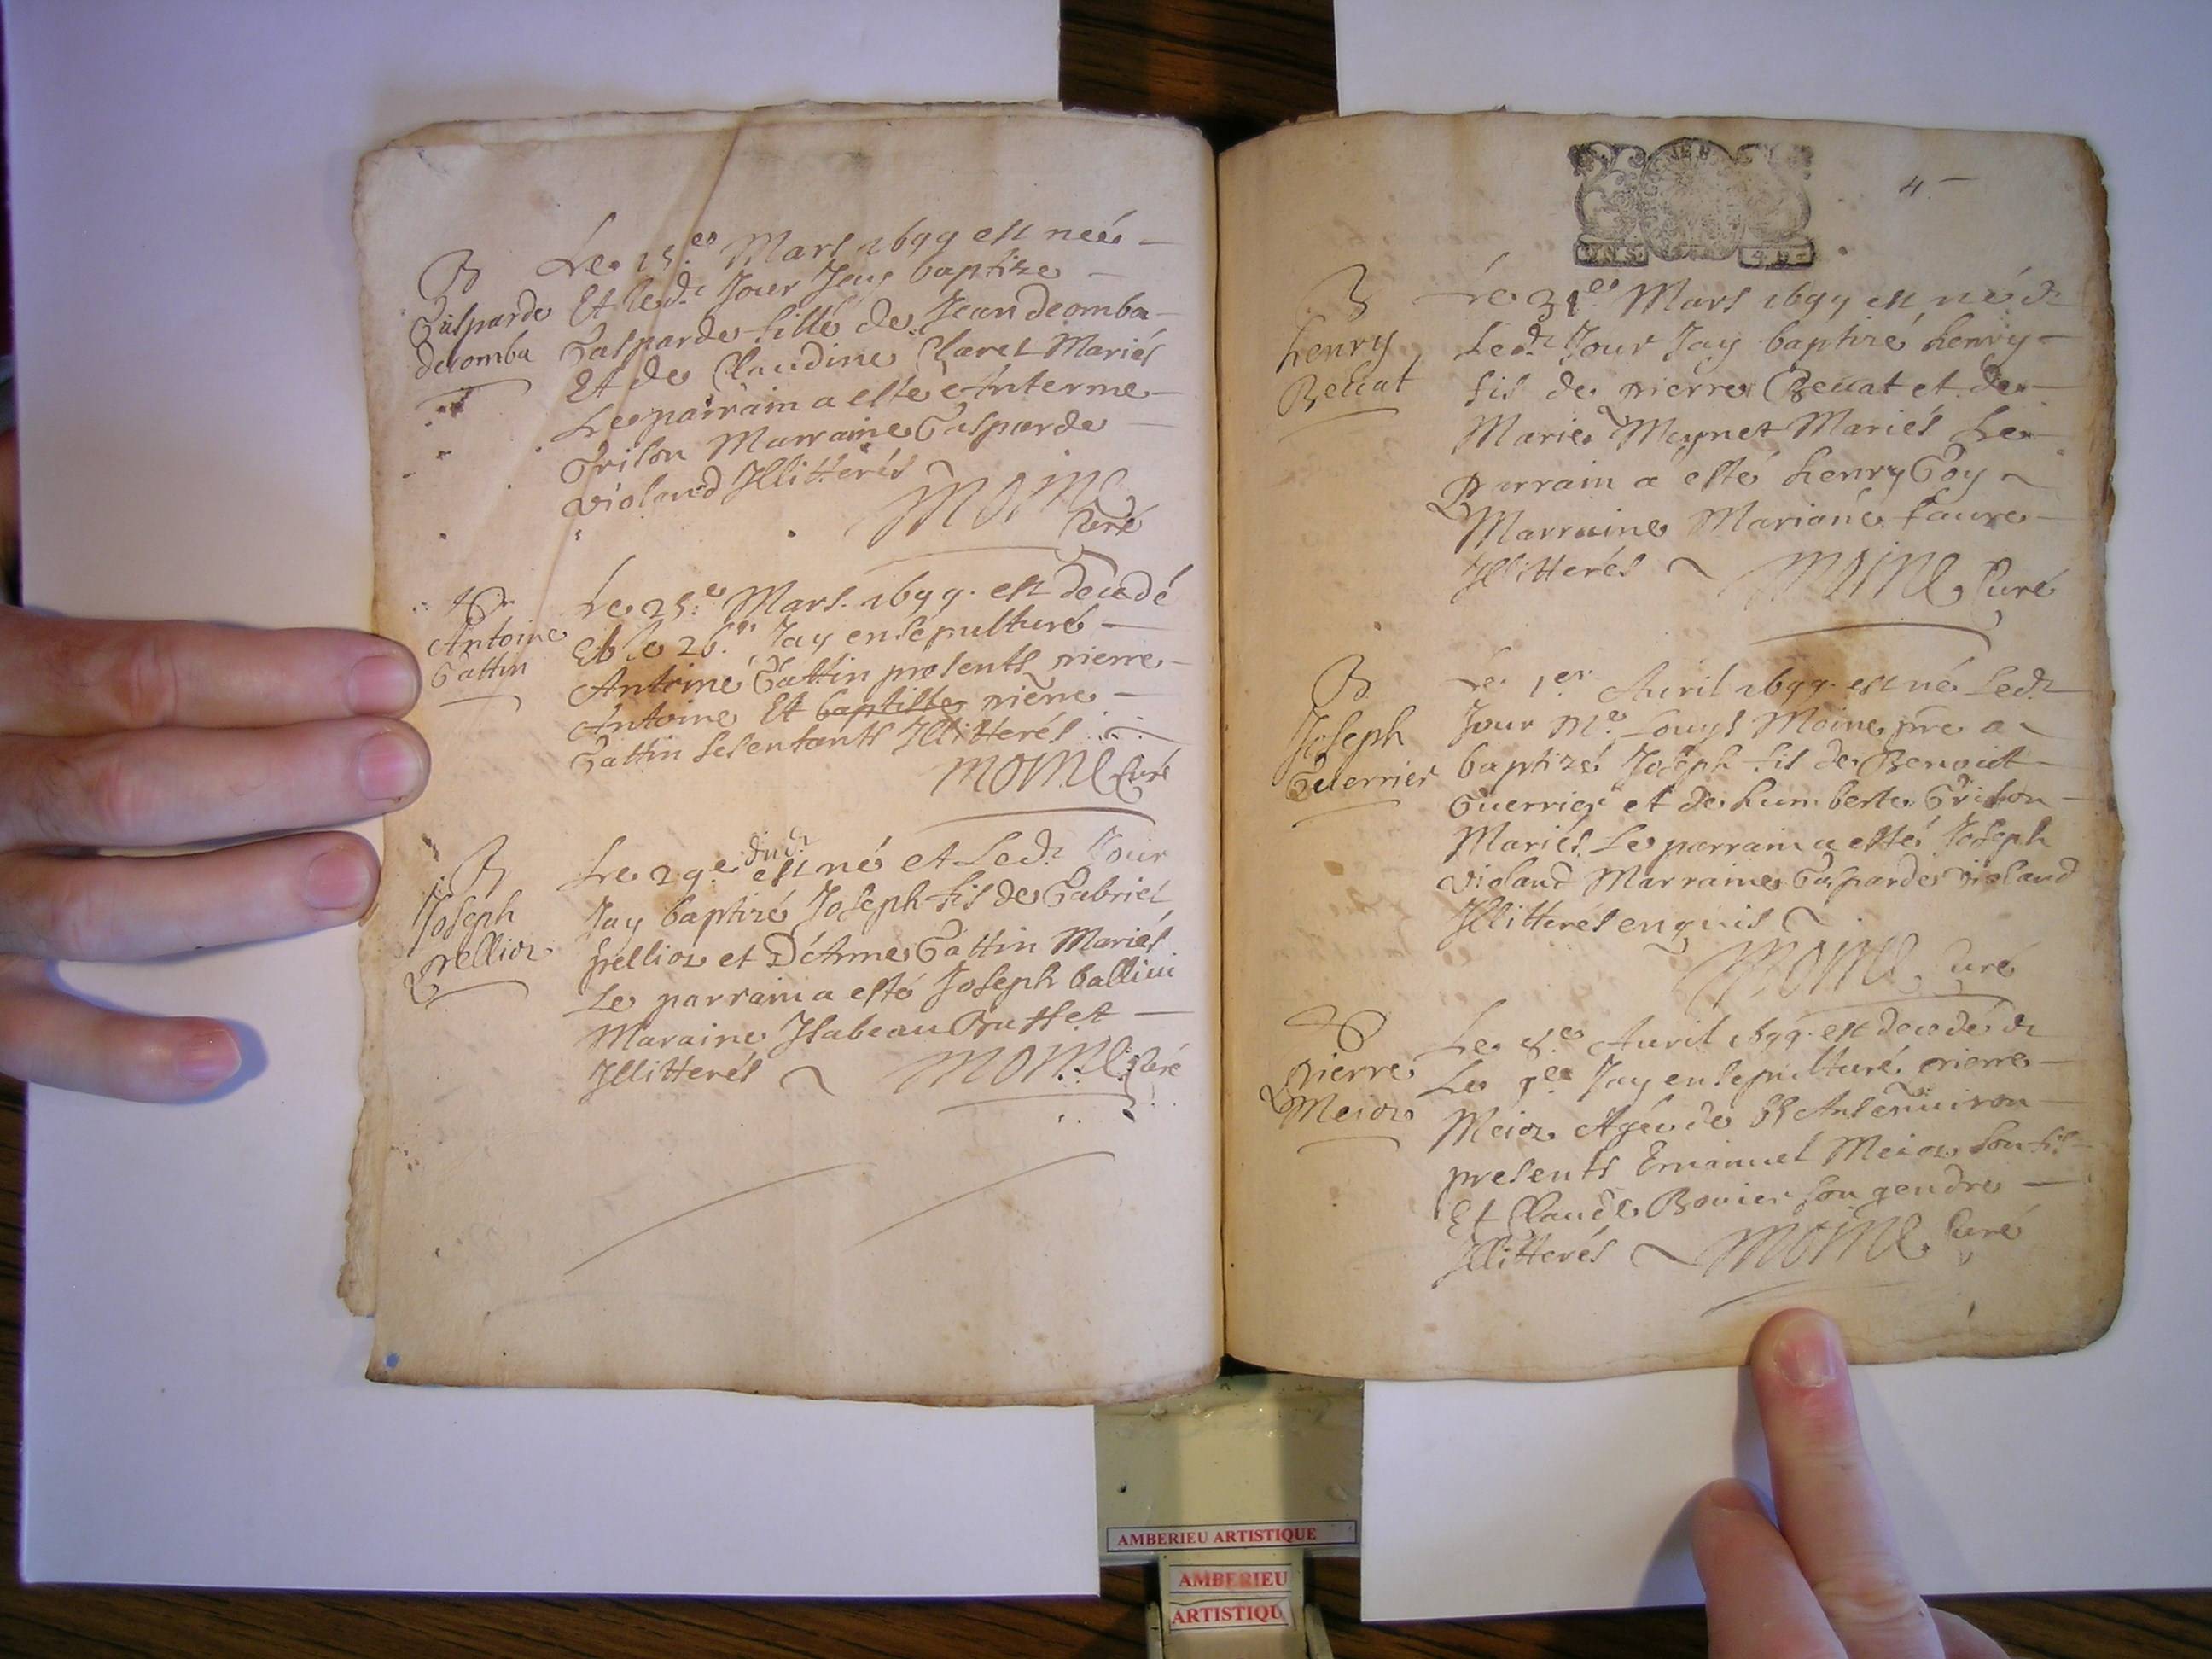 B
Gasparde
decomba
Le 15.e Mars 1699 est neé
Et led.t Jour Jay baptize
Gasparde fille de Jean decomba
Et de Claudine Claret Mariés
Le parrain a esté Anterme
Grison Marraine Gasparde
violand Illitterés
Moine
Curé
Antoine
Gattin
Le 25.e Mars 1699 est decedé
Et le 26.e Jay ensepulturé
Antoine Gattin presents pierre
Antoine Et baptiste pierre
Gattin ses enfants Illitterés
Moine Curé
B
Joseph
pellion
Le 29.e dud.t est né et Led.t Jour
Jay baptizé Joseph fils de Gabriel
pellion et D'Anne Gattin Mariés
Le parrain a esté Joseph ballivi
Maraine Isabeau Buffet
Illitterés Moine Curé
4
B
henry
Beccat
Le 31.e Mars 1699 est né &
Led.t Jour Jay baptizé henry
fils de pierre Beccat et de
Marie Meynet Mariés Le
Parrain a esté henry Goy
Marraine Mariane faure
Illitterés Moine Curé
B
Joseph
Guerrier
Le 1.er Avril 1699 est né Led.t
Jour M.e Louys Moine pre a
baptizé Joseph fils de Benoit
Guerrier et de humberte Grison
Mariés Le parrain a esté Joseph
violand Marraine Gasparde violand
Illitterés enquis
Moine Curé
pierre
Meion
Le 8.e Avril 1699 est decedé &
Le 9.e Jay ensepulturé pierre
Meion Agée de 55 Ans environ
presents Emanuel Meion son fils
Et Claude Bouvier son gendre
Illitterés Moine Curé
AMBERIEU ARTISTIQUE
AMBERIEU
ARTISTIQU